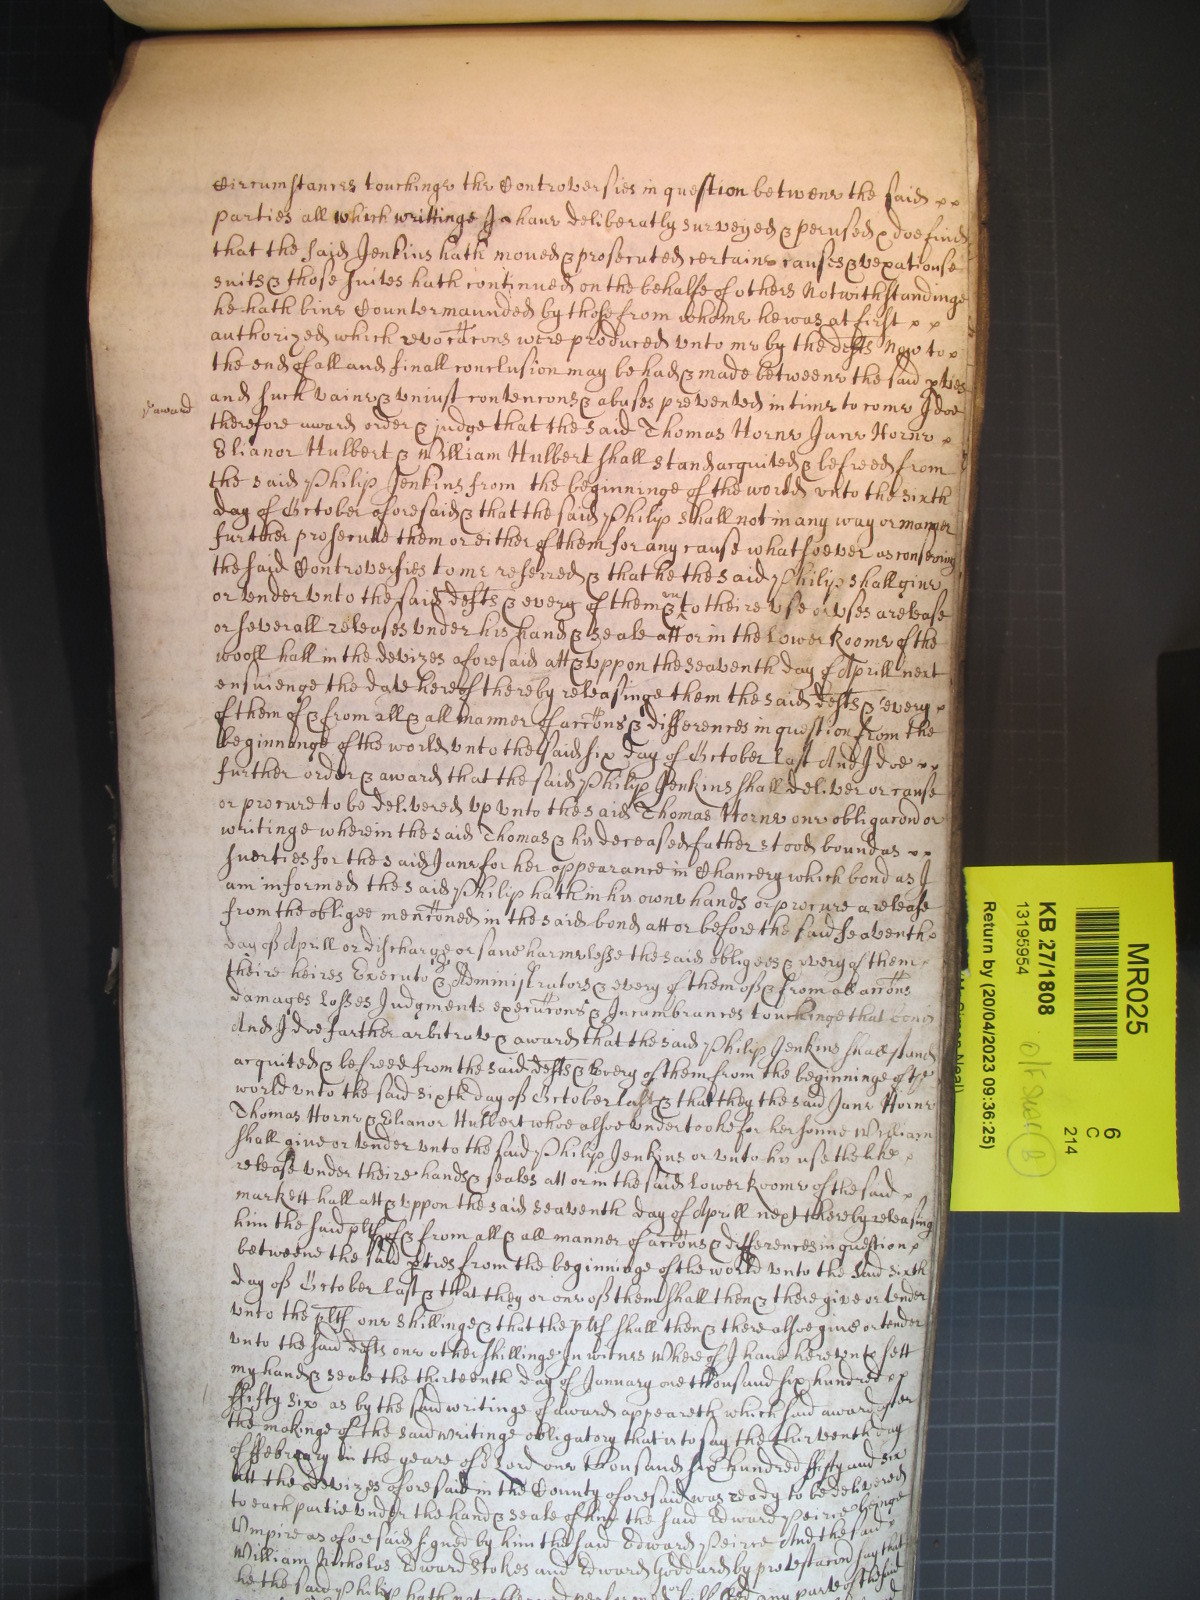 Circumstances touchinge the Controversies in question betweene the said
parties all which writtinge I haue deliberatly surveyed & perused & doe find
that the said Jenkins hath moued & prosecuted certaine causes & vexatiouse
suits & those suites hath continued on the behalfe of others Notwithstandinge
he hath bine Countermaunded by those from whome he was at first
authorized which revocacons were produced vnto me by the defts Now to
the end of all and finall conclusion may be had & made betweene the said pties
and such vaine & vniust contencons & abuses prevented in time to come I doe
award
therefore award order & judge that the said Thomas Horne Jane Horne
Elianor Hulbert & William Hulbert shall stand acquited & be freed from
the said Philip Jenkins from the beginninge of the world vnto the sixth
day of October aforesaid & that the said Philip shall not in any way or manner
further prosecute them or either of them for any cause whatsoever as conserning
the said Controversies to me referred & that he the said Philip shall giue
or tender vnto the said defts & every of them & to theire vse or vses a release
or severall releases vnder his hand & seale att or in the Lower Roome of the
wooll hall in the devizes aforesaid att & vppon the seaventh day of Aprill next
ensueinge the date hereof thereby releasinge them the said defts & every
of them of & from all & all manner of accons & differences in question from the
beginninge of the world vnto the said six day of October last And I doe
further order & award that the said Philip Jenkins shall deliver or cause
or procure to be delivered vp vnto the said Thomas Horne one obligacon or
writinge wherein the said Thomas & his deceased father stood bound as
suerties for the said Jane for her appearance in Chancery which bond as I
am informed the said Philip hath in his owne hands or procure a release
from the obligee menconed in the said bond att or before the said seaventh
day of Aprill or discharge or saue harmelesse the said obligees & every of them
theire heires Executors & Administrators & every of them of & from all accons
damages Losses Judgments execucons & Incumbrances touchinge that bond
And I doe further arbitrate & award that the said Philip Jenkins shall stand
acquited & be freed from the said defts & every of them from the beginninge of the
world vnto the said sixth day of October last & that they the said Jane Horne
Thomas Horne & Elianor Hulbert whoe alsoe vndertooke for her sonne William
shall giue or tender vnto the said Philip Jenkins or vnto his vse the like
release vnder theire hands & seales att or in the said Lower Roome of the said
markett hall att & vppon the said seaventh day of Aprill next thereby releasing
him the said pltf of & from all & all manner of accons & differences in question
betweene the said pties from the beginninge of the world vnto the said sixth
day of October last & that they or one of them shall then & there give or tender
vnto the pltf one shillinge & that the pltf shall then & there alsoe giue or tender
vnto the said defts one other shillinge In witnes Whereof I haue herevnto sett
my hand & seale the thirteenth day of January one thousand six hundred
ffifty six as by the said writinge of award appeareth which said award after
the makinge of the said writinge obligatory that is to say the thirteenth day
of ffebruary in the yeare of Lord one thousand six hundred ffifty and six
att the devizes aforesaid in the County aforesaid was ready to be delivered
to each partie vnder the hand & seale of him the said Edward Peirce beinge
Vmpire as aforesaid signed by him the said Edward Peirce And the said
William Nicholas Edward Stokes and Edward Goddard by protestacon say that
he the said Philip hath not observed performed or fulfilled any parte of the said
MR025
6
C
214
KB 27/1808
13195954
Return by (20/04/2023 09:36:25)